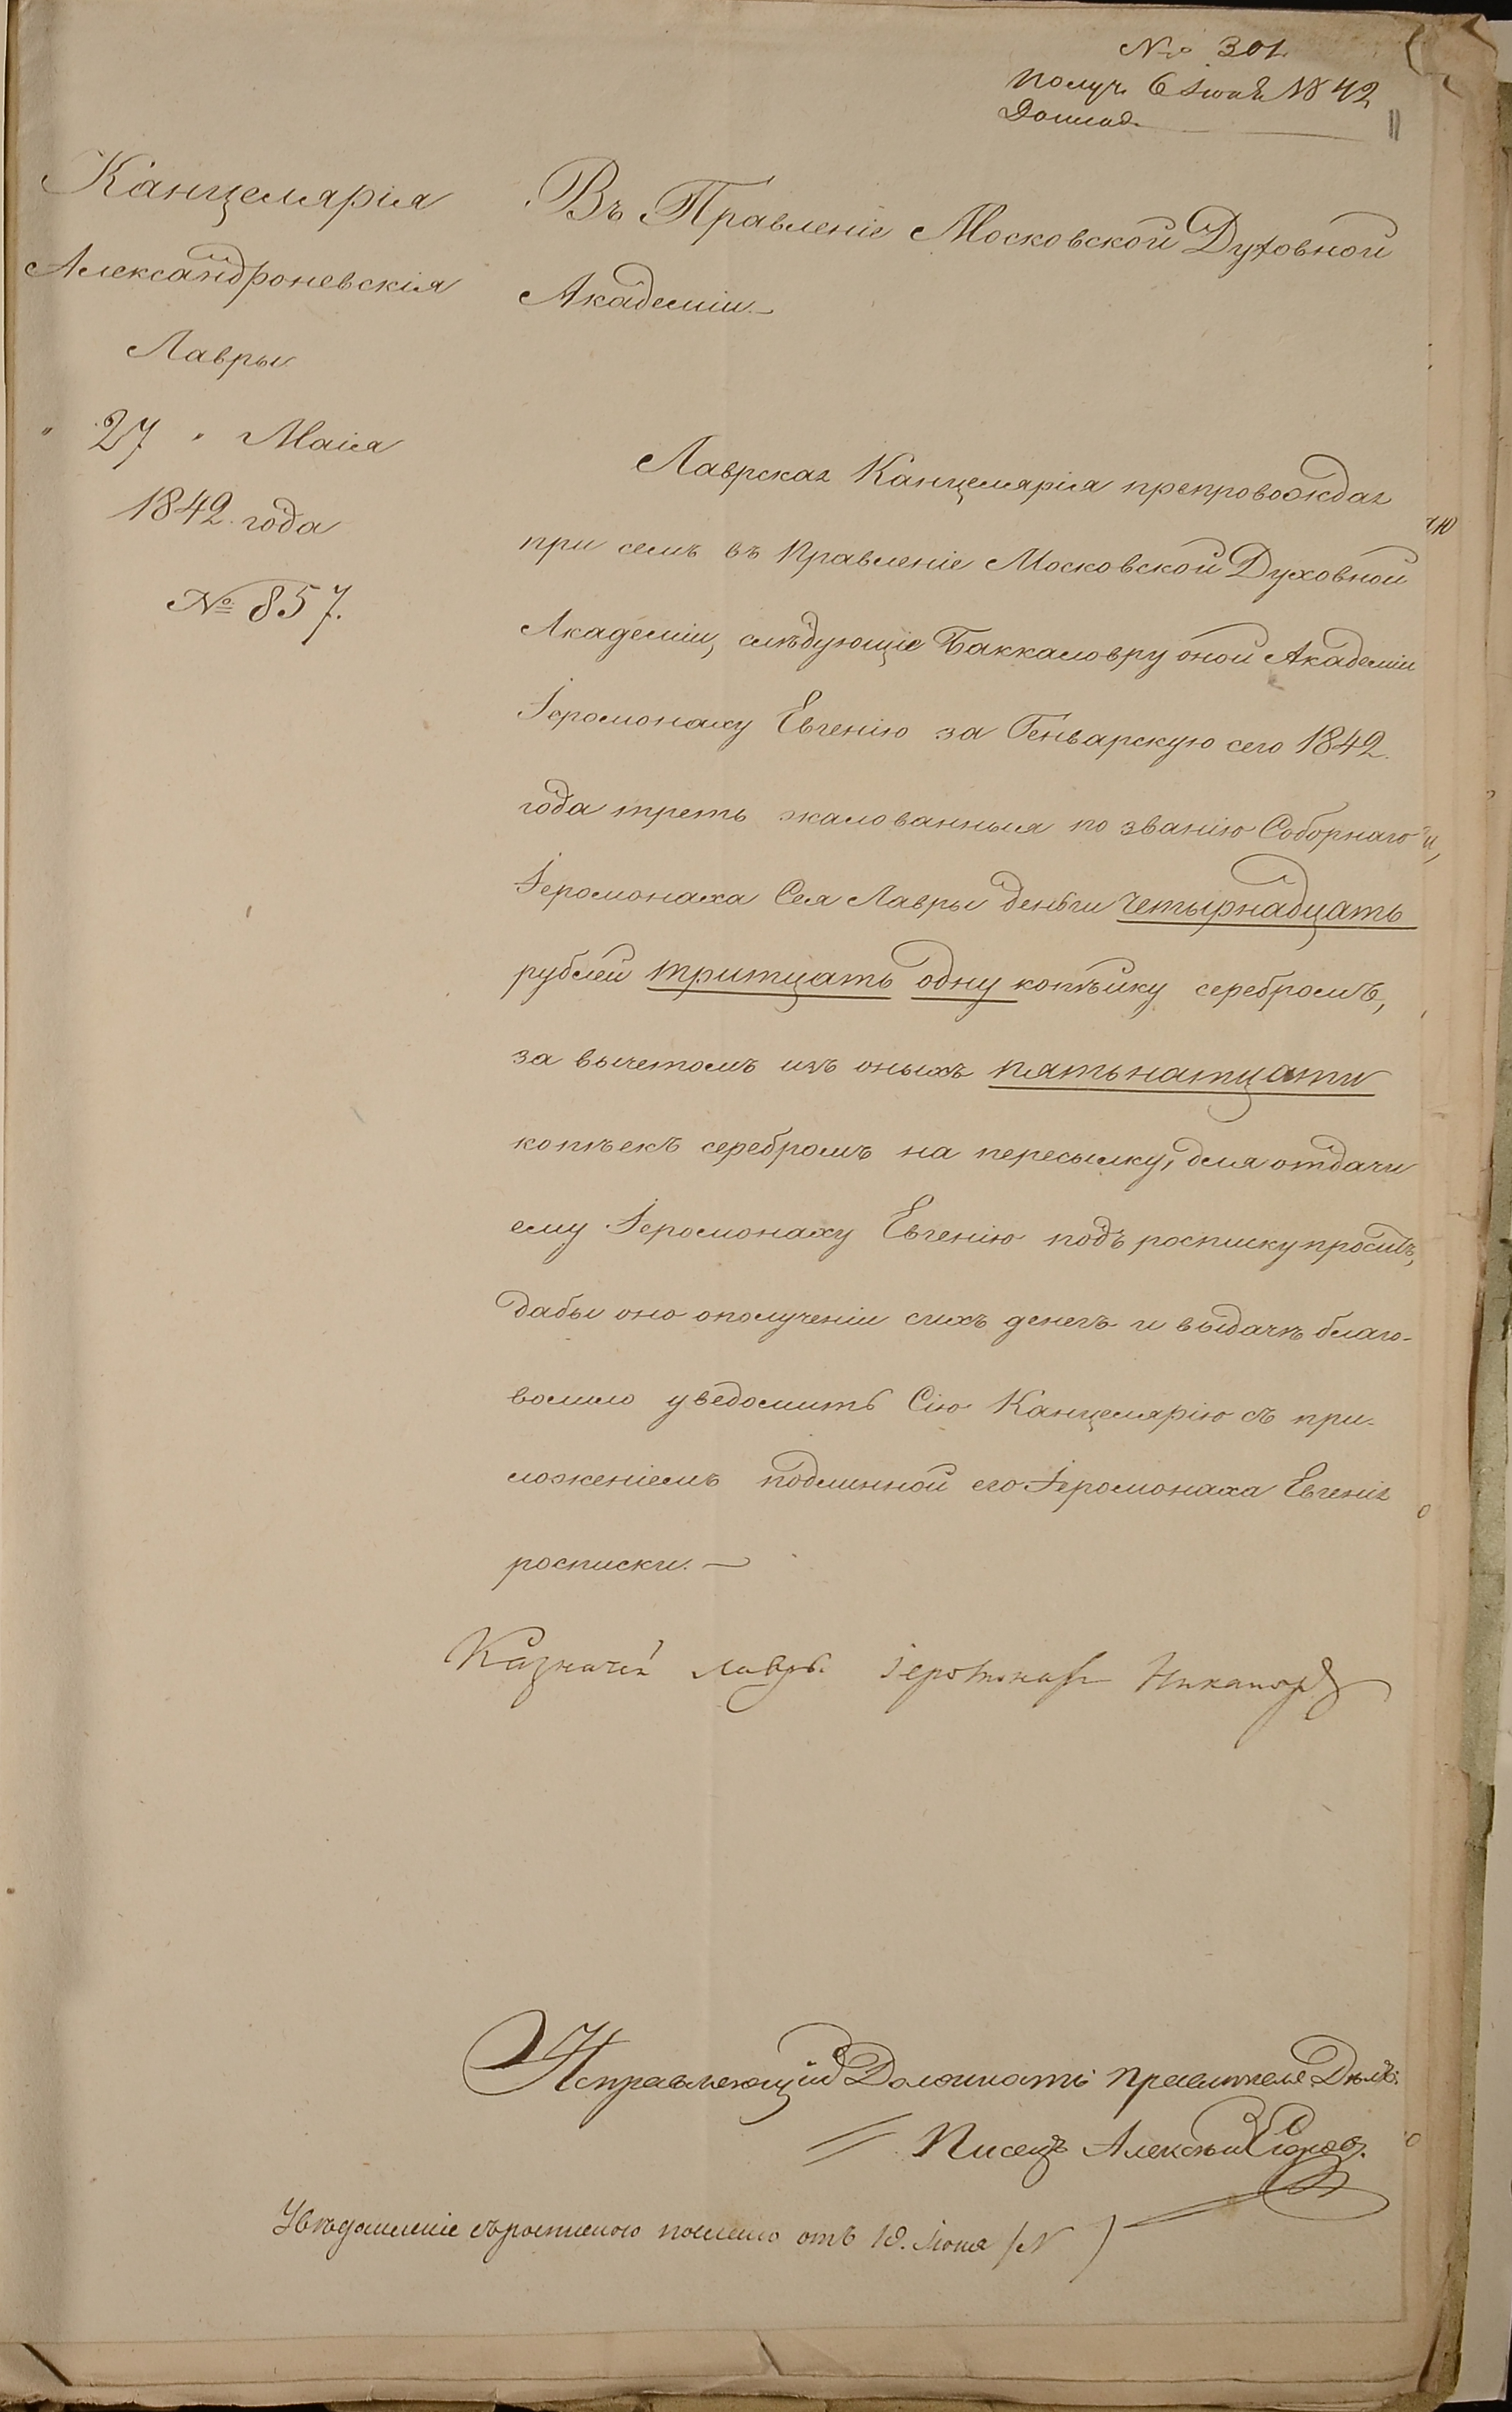 № 301.
Получ. 6 Іюня 1842
Доклад.
Канцелярія
Александроневскія
Лавры
" 27 " Маія
1842. года
№ 857.
Въ Правленіе Московской Духовной
Академіи.
Лаврская Канцелярія препровождая
при семъ въ Правленіе Московской Духовной
Академіи, слѣдующіе Баккаловру оной Академіи
Іеромонаху Евгенію за Генварскую сего 1842.
года треть жалованныя по званію Соборнаго
Іеромонаха Сея Лавры деньги четырнадцать
рублей тритцать одну копѣйку серебромъ,
за вычетомъ изъ оныхъ пятьнатцати
копѣекъ серебромъ на пересылку, для отдачи
ему Іеромонаху Евгенію подъ росписку проситъ,
дабы оно ополученіи сихъ денегъ и выдачѣ благо-
волило уведомить Сію Канцелярію съ при-
ложеніемъ подлинной его Іеромонаха Евгенія
росписки. —
Казначей Лавры Іеромонахъ Никаноръ
Исправляющій Должность Правителя Дѣлъ:
Писецъ Алексѣй
Увѣдомленіе съ роспискою послано отъ 18. Іюня (№ )